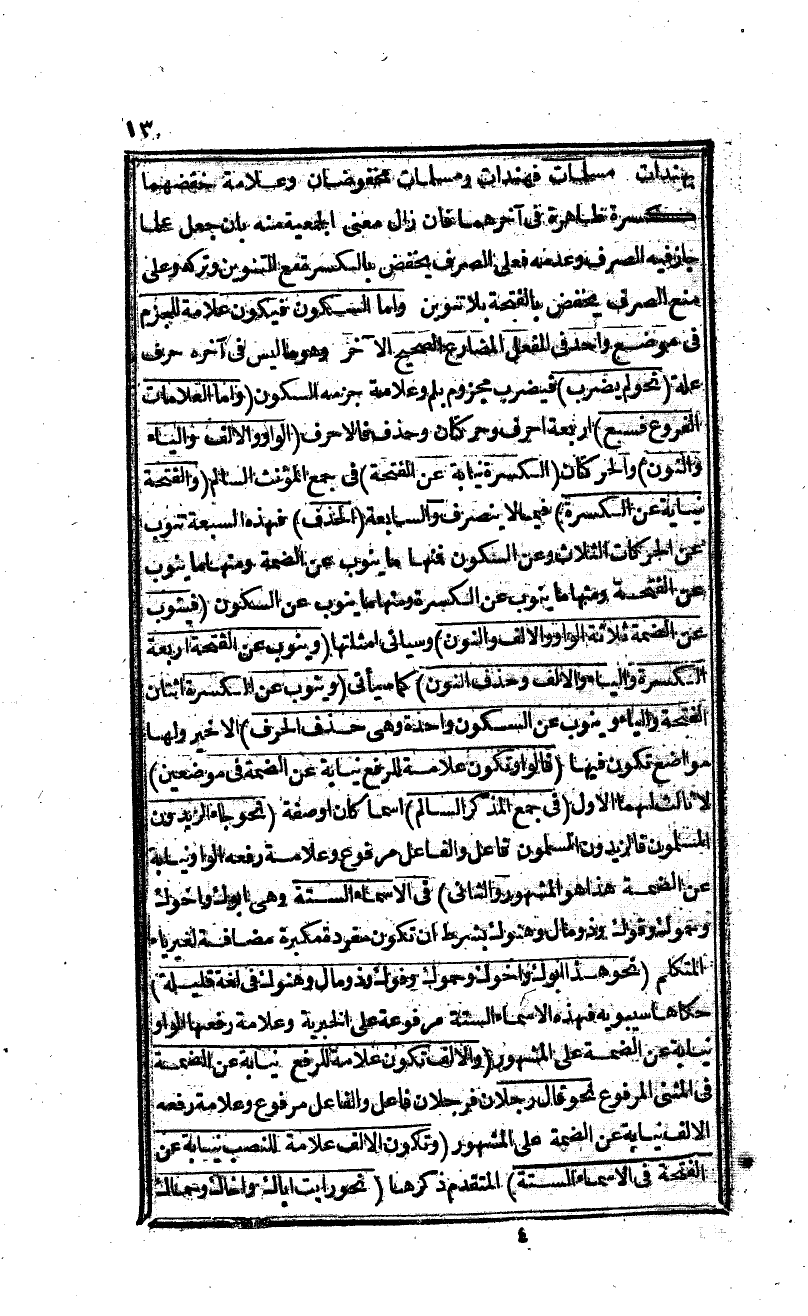 ١٣
بهندات مسلمات فهندات ومسلمات مخفوضان وعلامة خفضهما
كسرة ظاهرة فى آخرهما فان زال معنى الجمعية منه بان جعل علما
جاز فيه الصرف وعدمه فعلى الصرف يخفض بالكسرة مع التنوين وتركه وعلى
منع الصرف يخفض بالفتحة بلا تنوين واما السكون فيكون علامة للجزم
فى موضع واحد فى الفعل المضارع الصحيح الآخر وهو ما ليس فى آخره حرف
علة (نحو لم يضرب) فيضرب مجزوم بلم وعلامة جزمه السكون (واما العلامات
الفروع فسبع) اربعة احرف وحركتان وحذف فالاحرف (الواو والالف والياء
والنون) والحركتان (الكسرة نيابة عن الفتحة) فى جمع المؤنث السالم (والفتحة
نيابة عن الكسرة) فيما لا ينصرف والسابعة (الحذف) فهذه السبعة تنوب
عن الحركات الثلاث وعن السكون فمنها ما ينوب عن الضمة ومنها ما ينوب
عن الفتحة ومنها ما ينوب عن الكسرة ومنها ما ينوب عن السكون (فينوب
عن الضمة ثلاثة الواو والالف والنون) وسياتى امثلتها (وينوب عن الفتحة اربعة
الكسرة والياء والالف وحذف النون) كما سيأتى (وينوب عن الكسرة اثنتان
الفتحة والياء وينوب عن السكون واحدة وهى حذف الحرف) الاخير ولها
مواضع تكون فيها (فالواو تكون علامة للرفع نيابة عن الضمة فى موضعين)
لا ثالث لهما الاول (فى جمع المذكر السالم) اسما كان او صفة (نحو جاء الزيدون
المسلمون فالزيدون المسلمون فاعل والفاعل مرفوع وعلامة رفعه الواو نيابة
عن الضمة هذا هو المشهور والثانى) فى الاسماء الستة وهى ابوك واخوك
وحموك وفوك وذو مال وهنوك بشرط ان تكون مفردة مكبرة مضافة لغير ياء
المتكلم (نحو هذا ابوك واخوك وحموك وفوك وذو مال وهنوك فى لغة قليلة)
حكاها سيبويه فهذه الاسماء الستة مرفوعة على الخبرية وعلامة رفعها الواو
نيابة عن الضمة على المشهور (والالف تكون علامة للرفع نيابة عن الضمة
فى المثنى المرفوع نحو قال رجلان فرجلان فاعل والفاعل مرفوع وعلامة رفعه
الالف نيابة عن الضمة على المشهور (وتكون الالف علامة للنصب نيابة عن
الفتحة فى الاسماء الستة) المتقدم ذكرها (نحو رايت اباك واخاك وحماك
٤